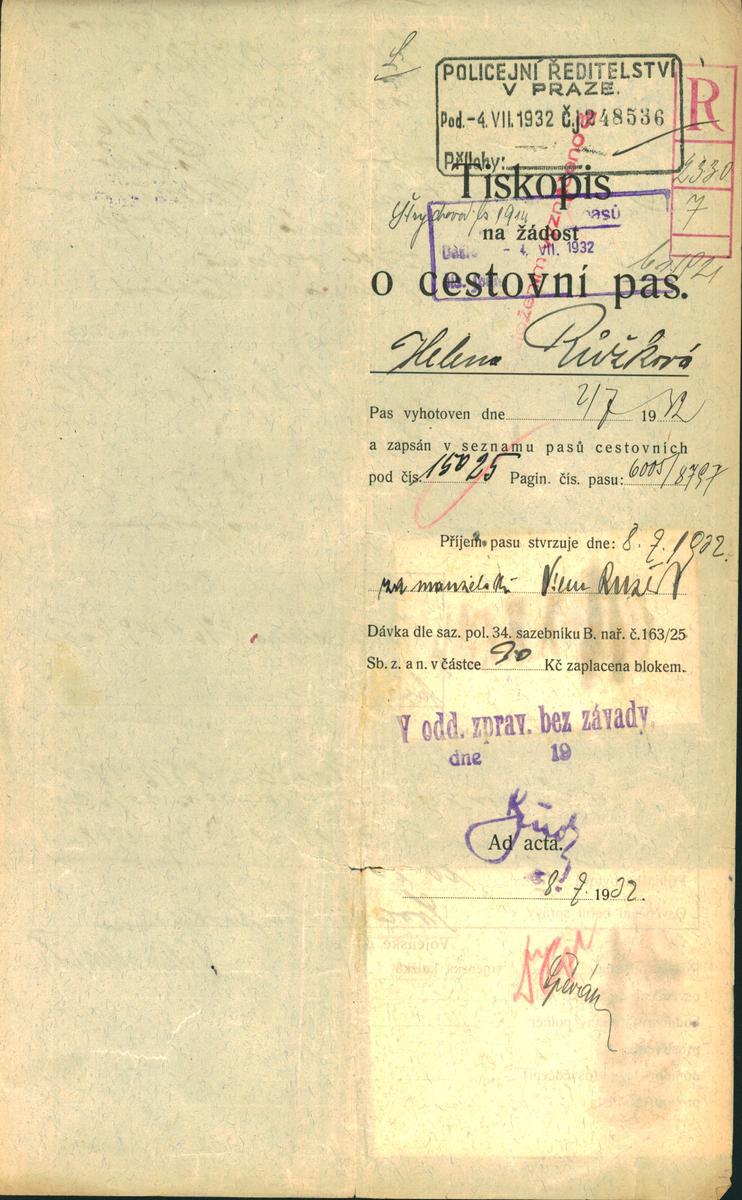 POLICEJNÍ ŘEDITELSTVÍ
V PRAZE.
Pod. -4. VII. 1932 Č.j. 248536
Přílohy:
R
2330
7
Tiskopis
pasů
na žádost
- 4. VII. 1932
o cestovní pas.
Helena Růžková
Pas vyhotoven dne 2/7 1932
a zapsán v seznamu pasů cestovních
pod čís. 15025 Pagin. čís. pasu: 6005/8797
Příjem pasu stvrzuje dne: 8. 7. 1932.
za manželku
Dávka dle saz. pol. 34. sazebníku B. nař. č. 163/25
Sb. z. a n. v částce 90 Kč zaplacena blokem.
V odd. zprav. bez závady.
dne 19
Ad acta.
8. 7. 1932.